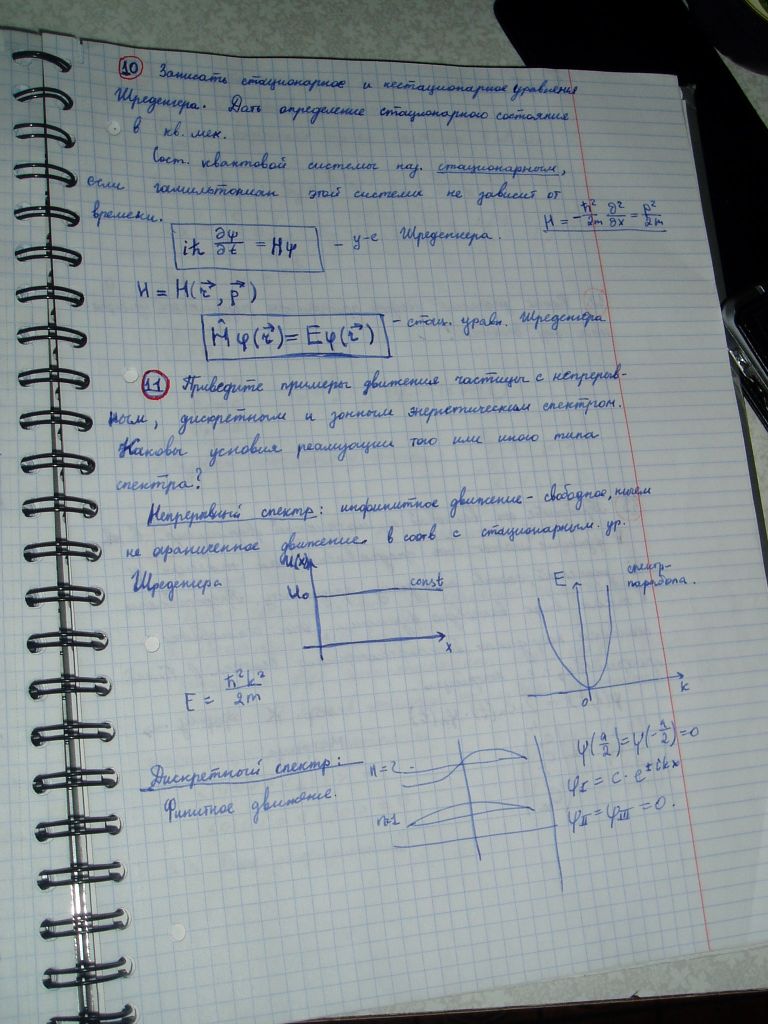 10 Записать стационарное и нестационарное уравнения
Шредингера. Дать определение стационарного состояния
в кв. мех.
Сост. квантовой системы наз. стационарным,
если гамильтониан этой системы не зависит от
времени.
H = -ħ²/2m ∂²/∂x = p²/2m
iħ ∂ψ/∂t = Hψ - у-е Шредингера.
H = H(r⃗, p⃗)
Ĥφ(r⃗) = Eφ(r⃗) - стац. уравн. Шредингера
11 Приведите примеры движения частицы с непрерыв-
ным, дискретным и зонным энергетическим спектром.
Каковы условия реализации того или иного типа
спектра?
Непрерывный спектр: инфинитное движение - свободное, ничем
не ограниченное движение. в соотв с стационарным. ур.
Шредингера
U(x)
U₀
const
x
E
спектр-
парабола.
0
k
E = ħ²k²/2m
Дискретный спектр:
Финитное движение.
n=2
n=1
ψ(a/2) = ψ(-a/2) = 0
φI = C · e^±ikx
φII = φIII = 0.